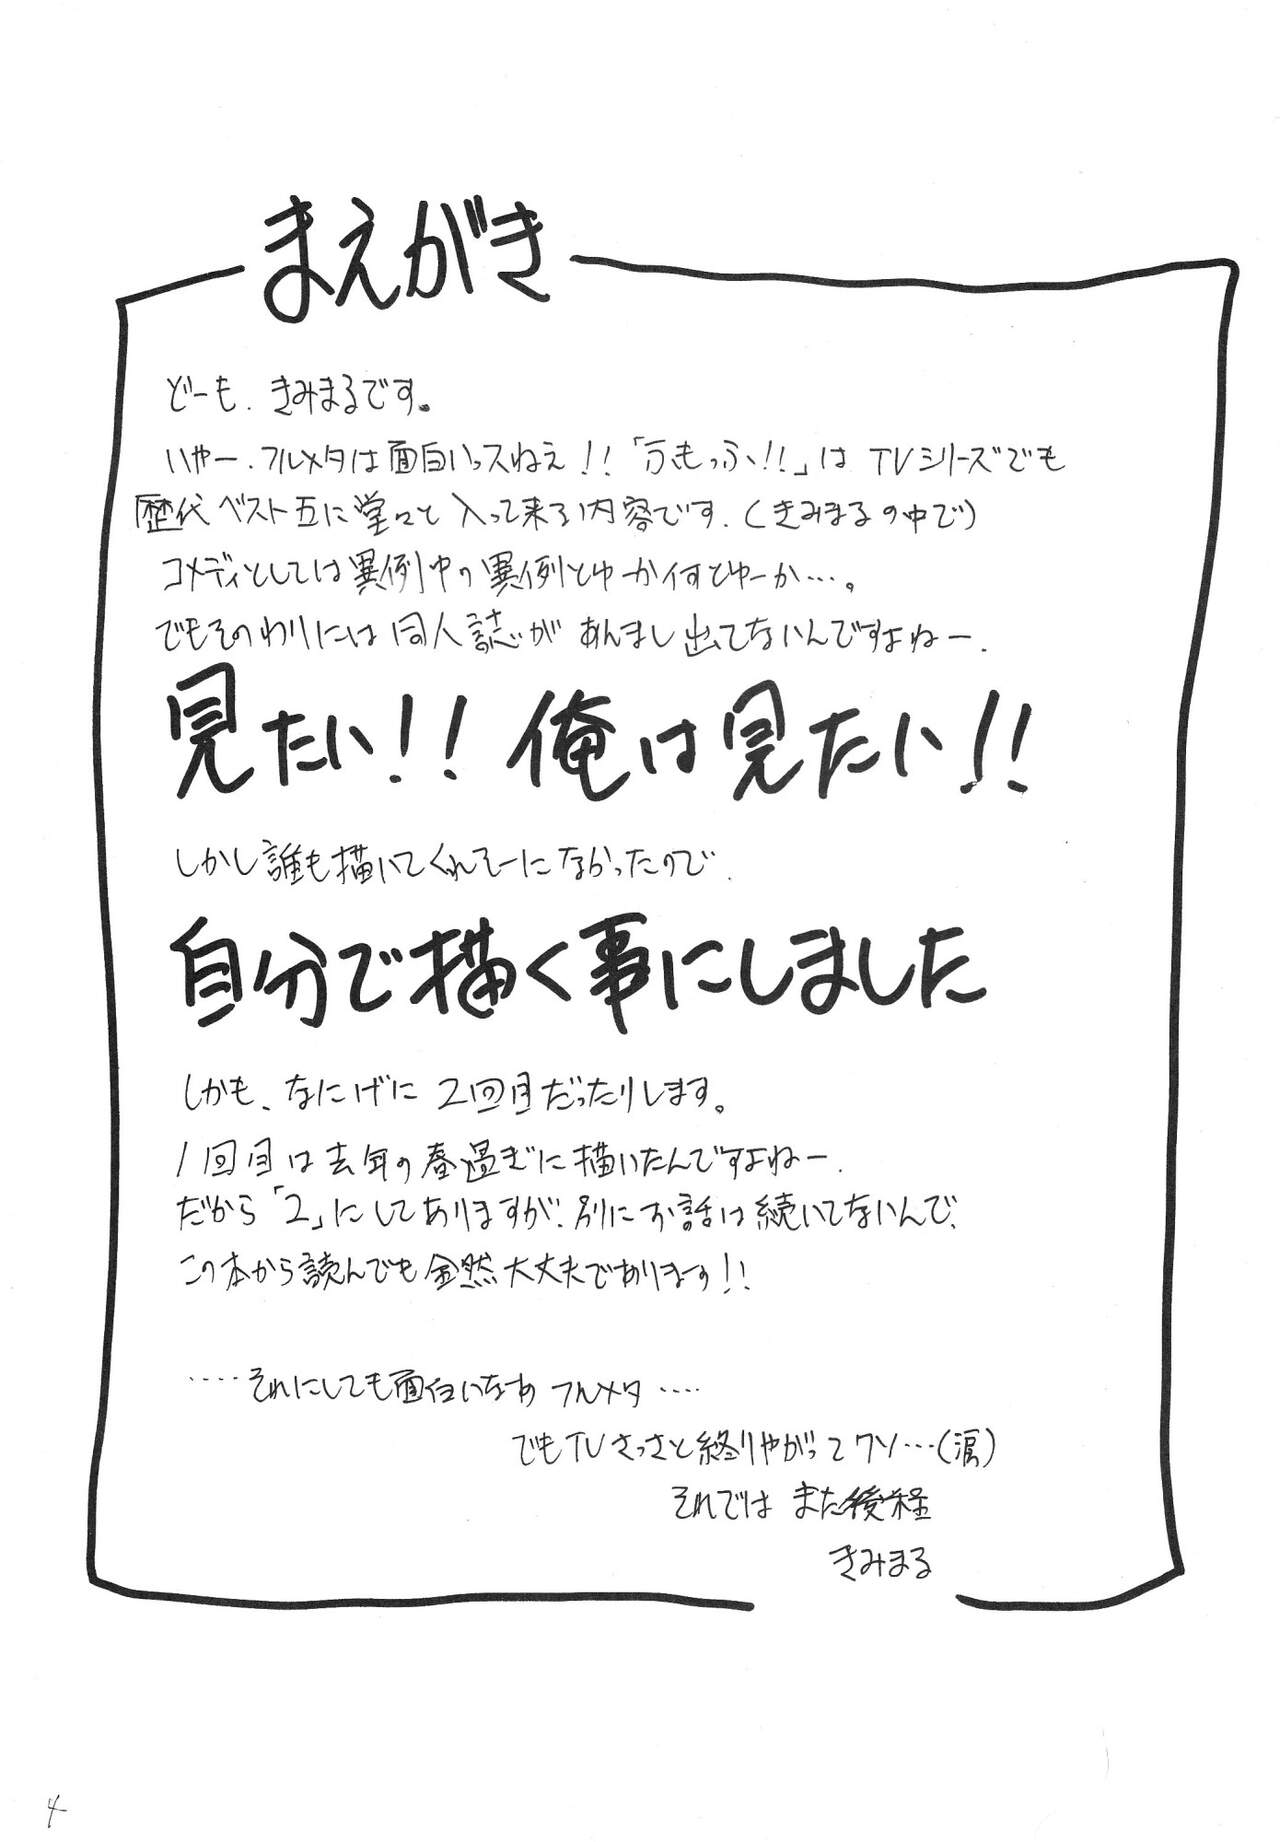 まえがき
どーも、きみまるです。
いやー、フルメタは面白いっスねえ!!「ふもっふ!!」はTVシリーズでも
歴代ベスト五に堂々と入って来る内容です、(きみまるの中で)
コメディとしては異例中の異例とゆーか何とゆーか…。
でもそのわりには同人誌があんまし出てないんですよねー、
見たい!!俺は見たい!!
しかし誰も描いてくれそーになかったので、
自分で描く事にしました
しかも、なにげに2回目だったりします。
1回目は去年の春過ぎに描いたんですよねー、
だから「2」にしてありますが、別にお話は続いてないんで、
この本から読んでも全然大丈夫であります!!
……それにしても面白いなあフルメタ……
でもTVさっさと終りやがってクソ…(涙)
それではまた後程
きみまる
4